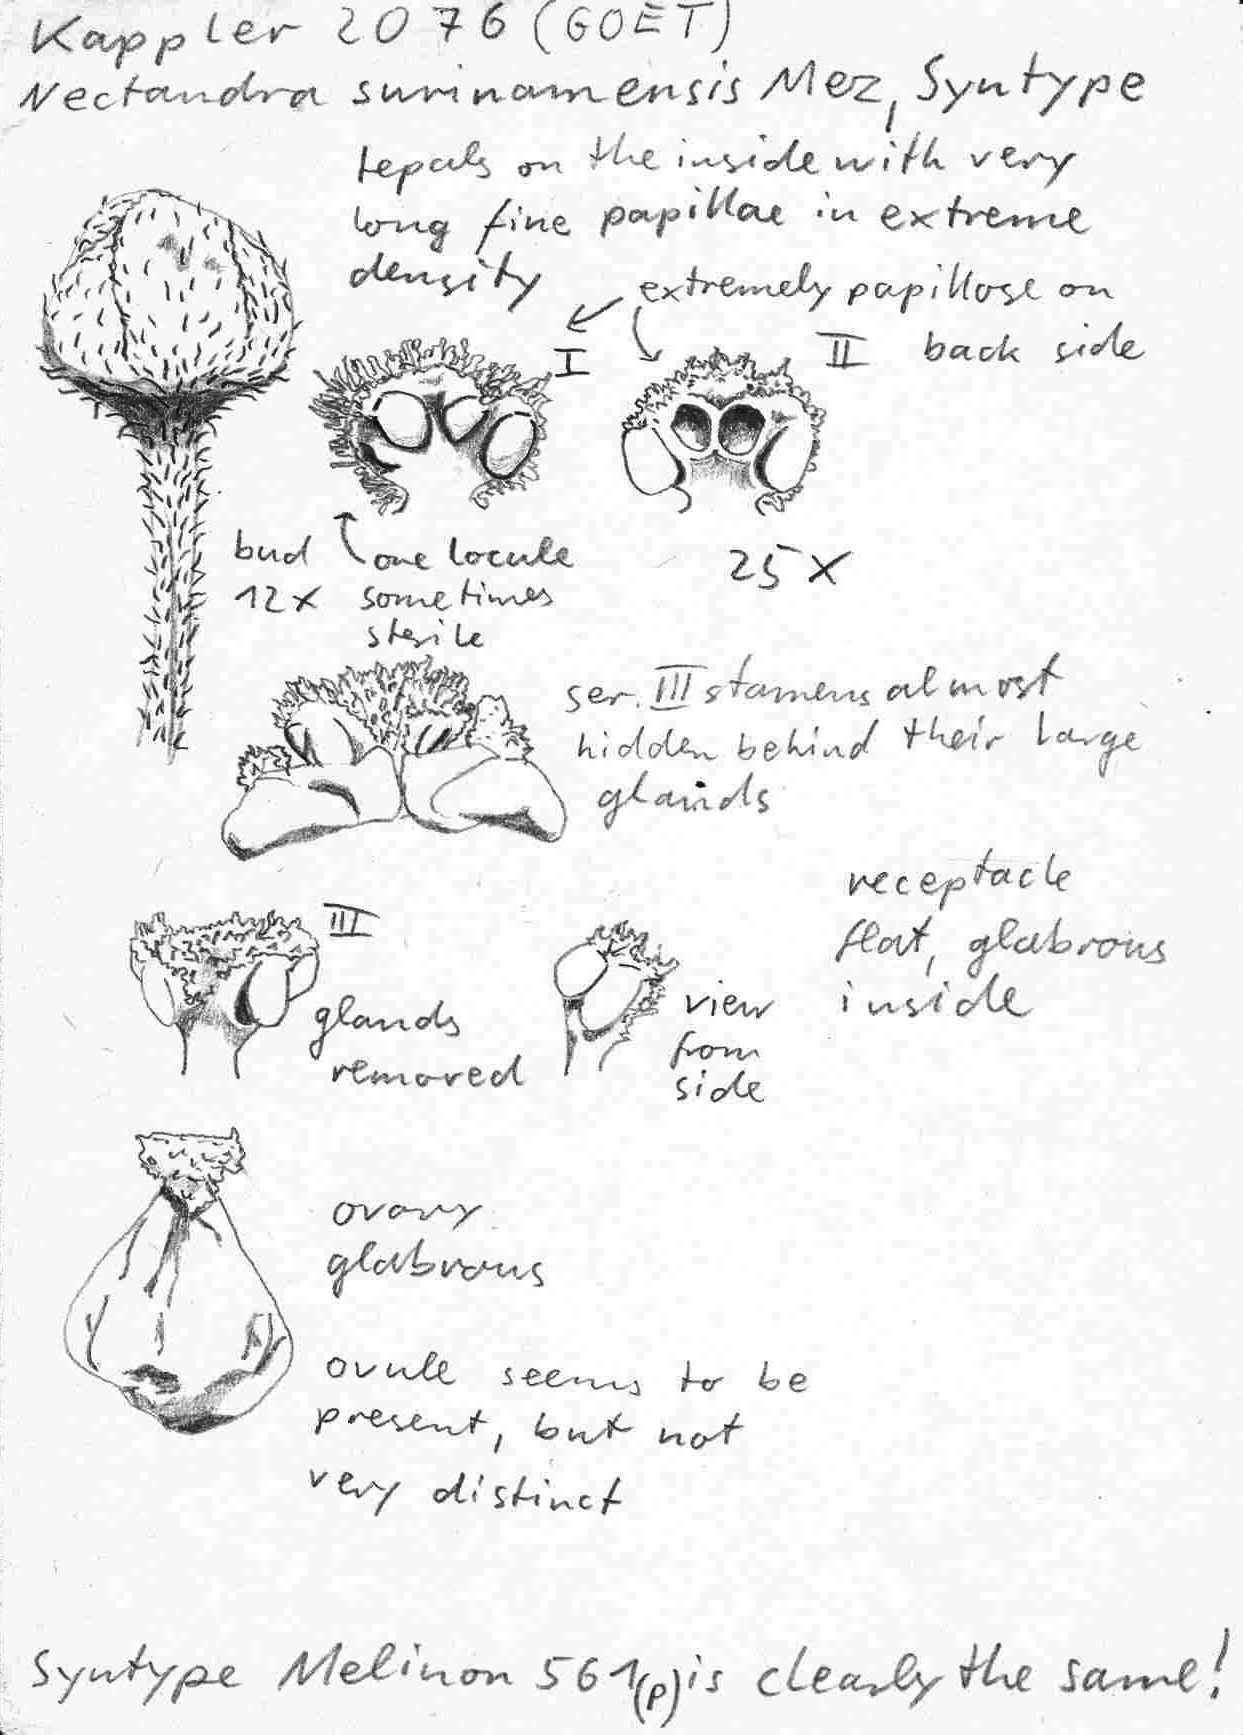 Kappler 2076 (GOET)
Nectandra surinamensis Mez, Syntype
tepals on the inside with very
long fine papillae in extreme
density
extremely papillose on
back side
I
II
bud
12x
one locule
sometimes
sterile
25x
ser. III stamens almost
hidden behind their large
glands
receptacle
flat, glabrous
inside
III
glands
removed
view
from
side
ovary
glabrous
ovule seems to be
present, but not
very distinct
Syntype Melinon 561(p) is clearly the same!